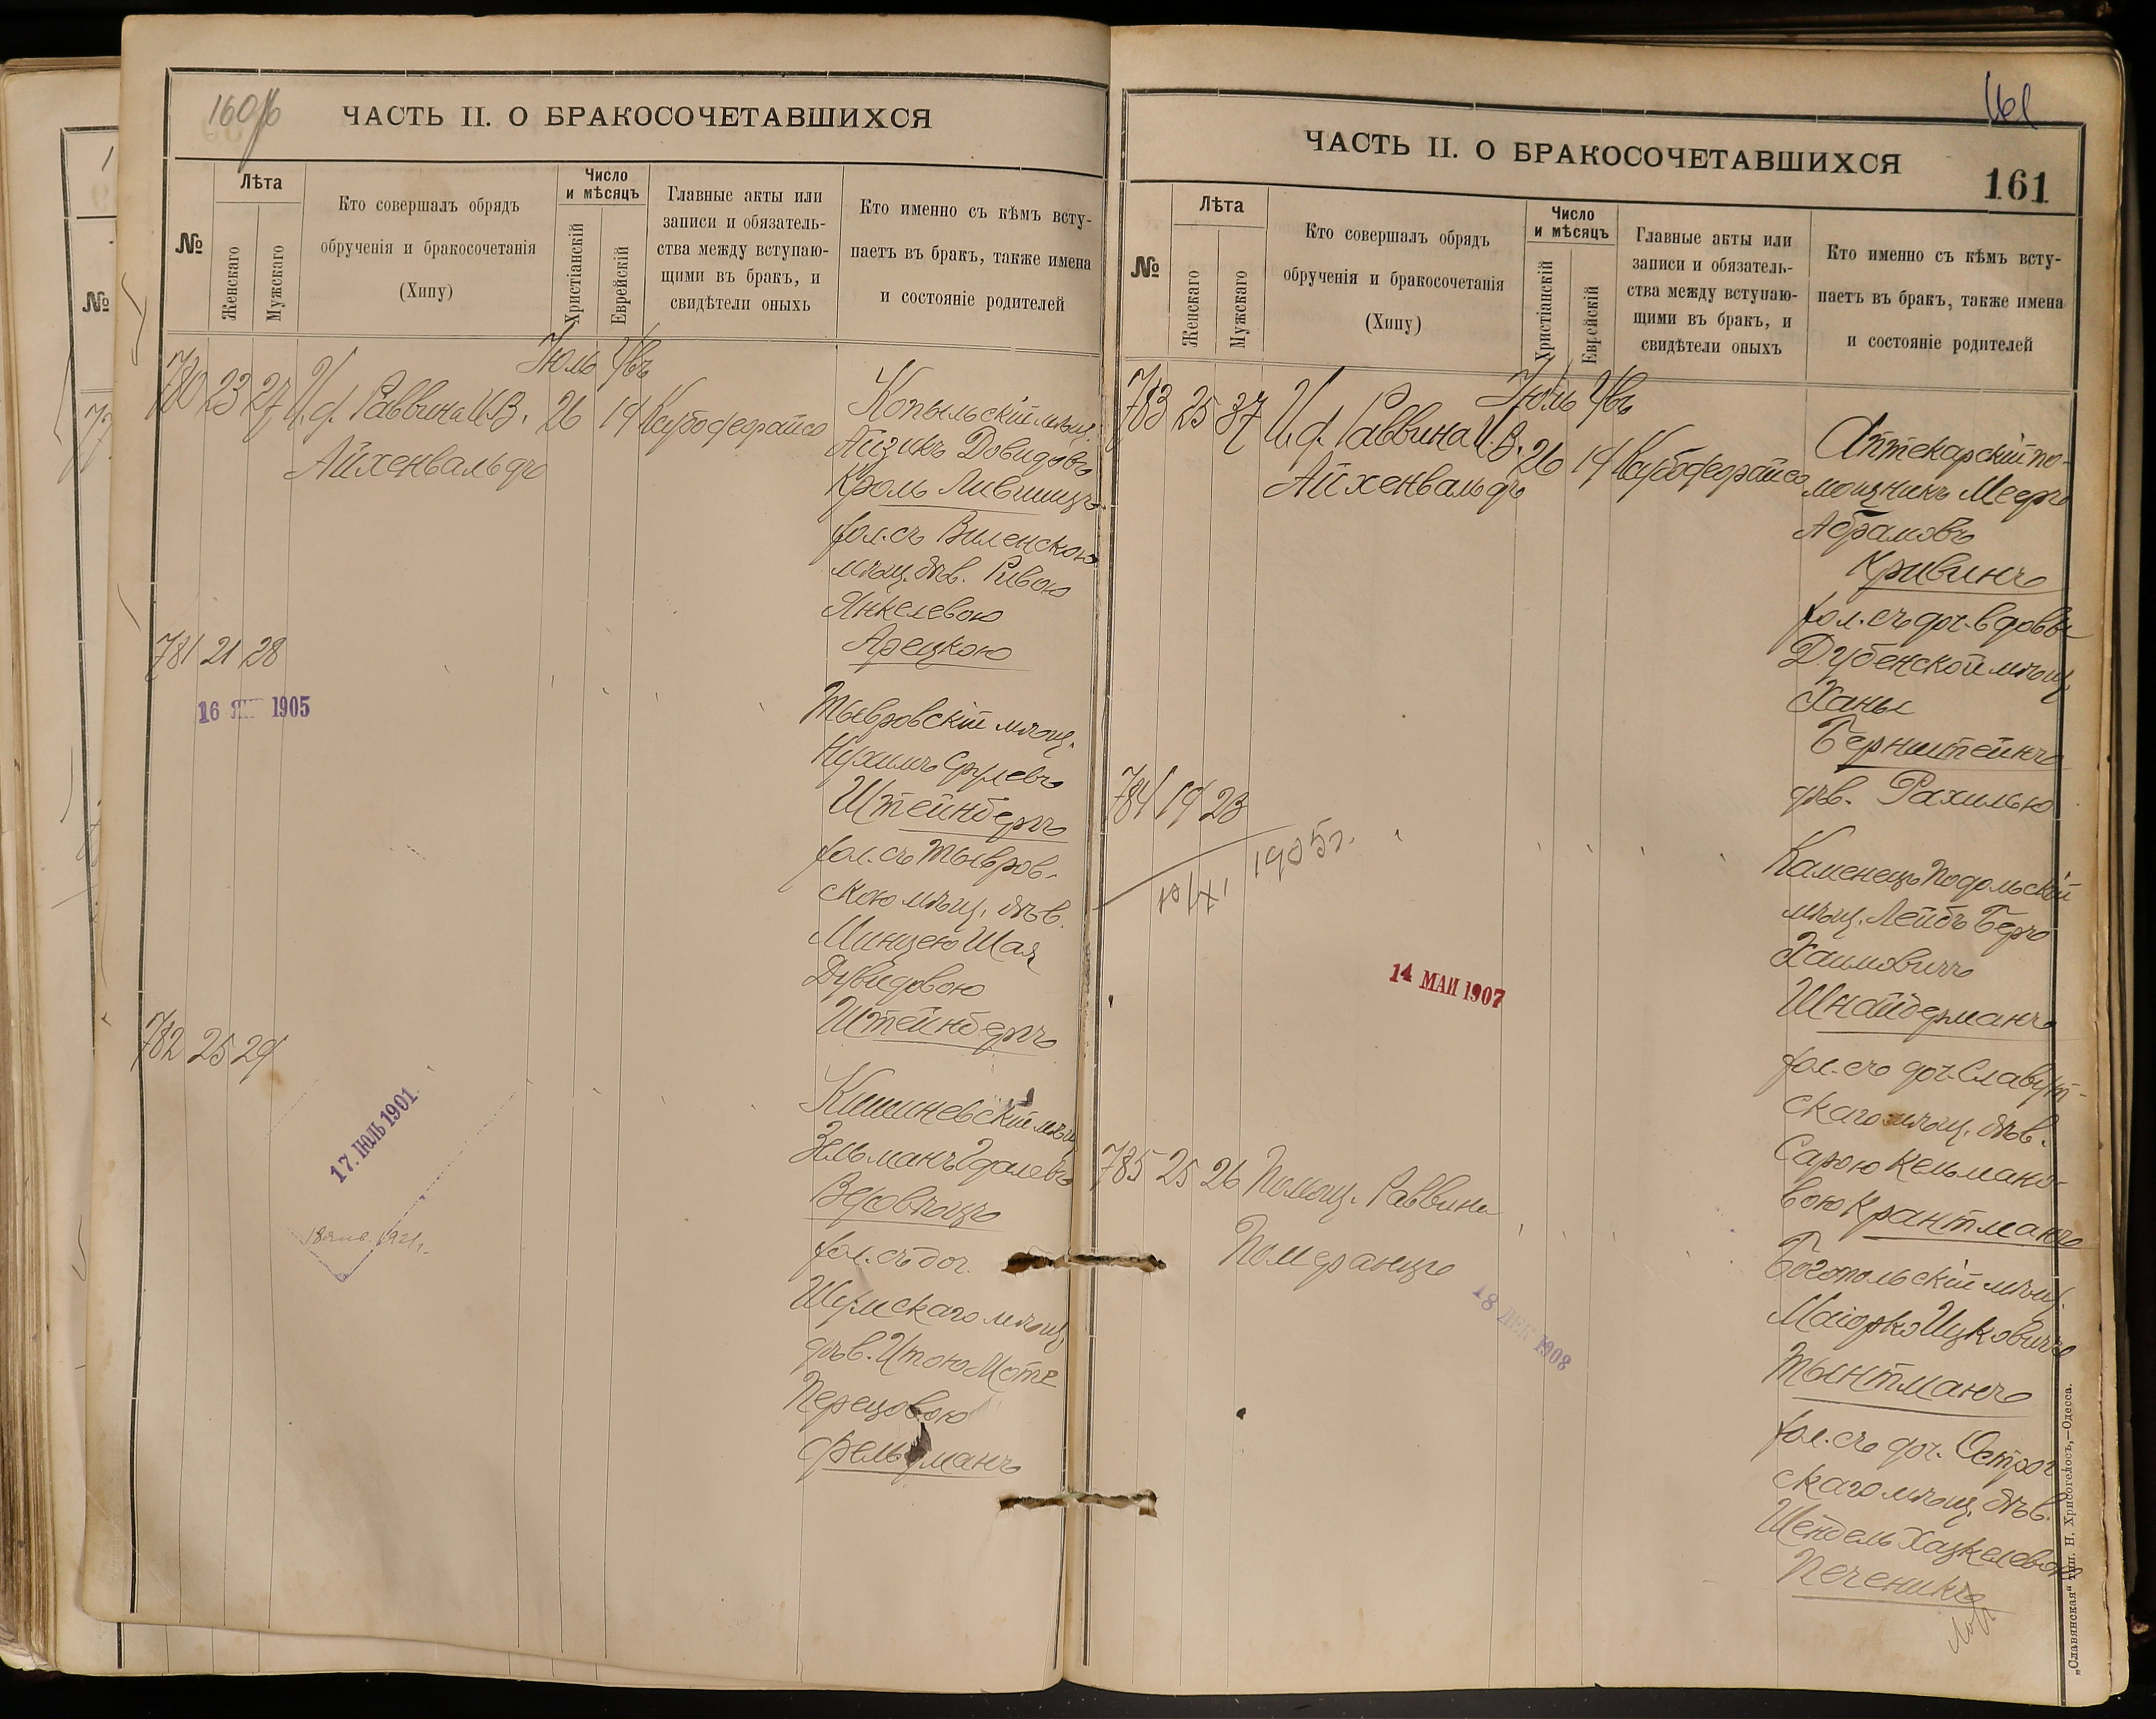 160 об
ЧАСТЬ II. О БРАКОСОЧЕТАВШИХСЯ
№
Лѣта
Женскаго
Мужскаго
Кто совершалъ обрядъ
обрученія и бракосочетанія
(Хипу)
Число
и мѣсяцъ
Христіанскій
Еврейскій
Главные акты или
записи и обязатель-
ства между вступаю-
щими въ бракъ, и
свидѣтели оныхъ
Кто именно съ кѣмъ всту-
паетъ въ бракъ, также имена
и состояніе родителей
Іюль Авъ
780 23 27 И. д. Раввина И. В. 26 14
Айхенвальдъ
Копыльскій мѣщ.
Айзикъ Довидовъ
Кроль Лившицъ
хол. съ Виленскою
мѣщ. дѣв. Ривою
Янкелевою
Арецкою
781 21 28
16 ЯН 1905
Тывровскій мѣщ.
Нухимъ Срулевъ
Штейнбергъ
хол. съ Тывров-
скою мѣщ. дѣв.
Минцею Шая
Дувидовою
Штейнбергъ
782 25 29
17. ІЮЛЬ 1901.
Кишиневскій мѣщ.
Зельманъ Гдалевъ
хол. съ доч.
Шумскаго мѣщ.
дѣв. Итою Моте
Перецовою
Фельдманъ
161
ЧАСТЬ II. О БРАКОСОЧЕТАВШИХСЯ
161
№
Лѣта
Женскаго
Мужскаго
Кто совершалъ обрядъ
обрученія и бракосочетанія
(Хипу)
Число
и мѣсяцъ
Христіанскій
Еврейскій
Главные акты или
записи и обязатель-
ства между вступаю-
щими въ бракъ, и
свидѣтели оныхъ
Кто именно съ кѣмъ всту-
паетъ въ бракъ, также имена
и состояніе родителей
Іюль Авъ
783 25 37 И. д. Раввина И. В. 26 14
Айхенвальдъ
Аптекарскій по-
мощникъ Мееръ
Абрамовъ
Кривинъ
хол. съ доч. вдовы
Дубенской мѣщ.
Ханы
Бернштейнъ
дѣв. Рахилью
784 19 23
1905 г.
14 МАИ 1907
Каменецъ Подольскій
мѣщ. Лейбъ Беръ
Хаимовичъ
Шнайдерманъ
хол. съ доч. Славут-
скаго мѣщ. дѣв.
Сарою Кельмано-
вою Крантманъ
785 25 26 Помощ. Раввина
Померанцъ
18 ДЕК 1908
Богопольскій мѣщ.
Маіорко Ицковичъ
Тынтманъ
хол. съ доч. Острог
скаго мѣщ. дѣв.
Шендель Хацкелевою
Печеникъ
„Славянская“ тип. Н. Хрисогелосъ,—Одесса.